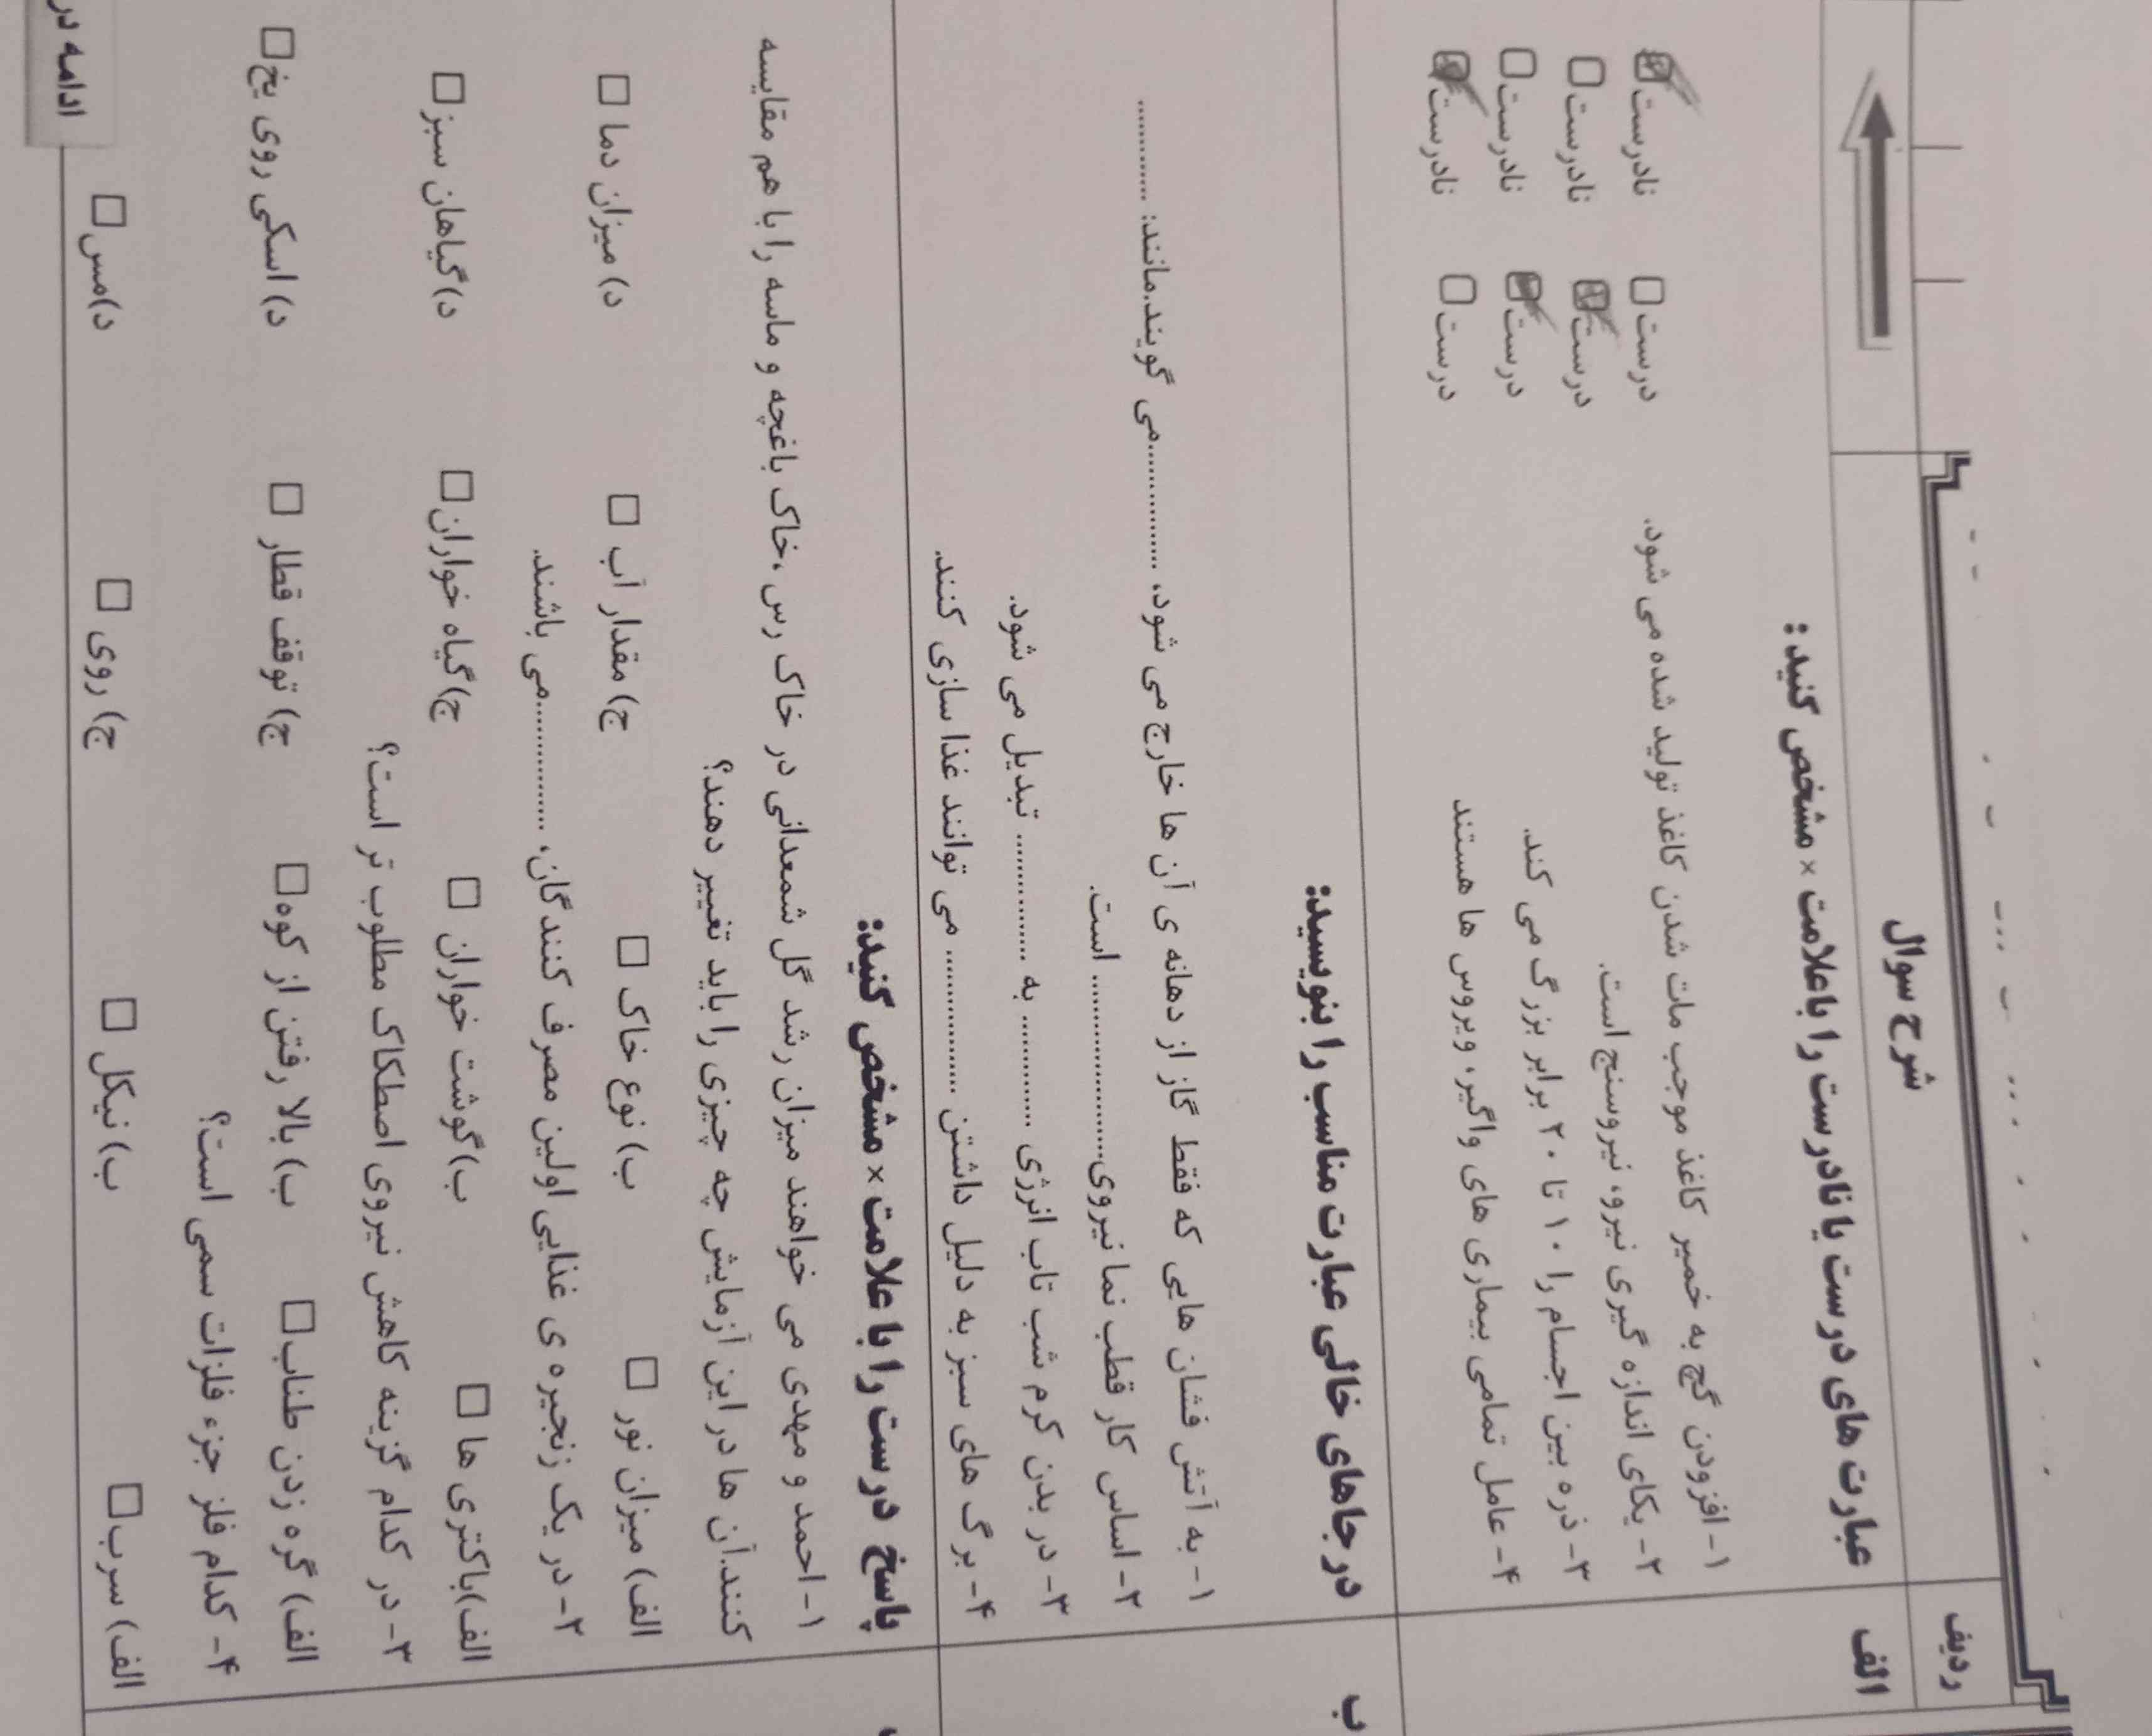 ردیف
شرح سوال
الف
عبارت های درست یا نادرست را با علامت × مشخص کنید :
۱- افزودن گچ به خمیر کاغذ موجب مات شدن کاغذ تولید شده می شود. درست□ نادرست□
۲- یکای اندازه گیری نیرو، نیروسنج است. درست□ نادرست□
۳- ذره بین اجسام را ۱۰ تا ۲۰ برابر بزرگ می کند. درست□ نادرست□
۴- عامل تمامی بیماری های واگیر، ویروس ها هستند درست□ نادرست□
ب
در جاهای خالی عبارت مناسب را بنویسید:
۱- به آتش فشان هایی که فقط گاز از دهانه ی آن ها خارج می شود، ............می گویند.مانند: ...........
۲- اساس کار قطب نما نیروی.................... است.
۳- در بدن کرم شب تاب انرژی ............ به ............. تبدیل می شود.
۴- برگ های سبز به دلیل داشتن .............. می توانند غذا سازی کنند.
پاسخ درست را با علامت × مشخص کنید:
۱- احمد و مهدی می خواهند میزان رشد گل شمعدانی در خاک رس ،خاک باغچه و ماسه را با هم مقایسه
کنند.آن ها در این آزمایش چه چیزی را باید تغییر دهند؟
الف) میزان نور □ ب) نوع خاک □ ج) مقدار آب □ د) میزان دما □
۲- در یک زنجیره ی غذایی اولین مصرف کنندگان، .............می باشند.
الف)باکتری ها □ ب)گوشت خواران □ ج)گیاه خواران□ د)گیاهان سبز □
۳- در کدام گزینه کاهش نیروی اصطکاک مطلوب تر است؟
الف) گره زدن طناب□ ب) بالا رفتن از کوه□ ج) توقف قطار □ د) اسکی روی یخ□
۴- کدام فلز جزء فلزات سمی است؟
الف) سرب□ ب) نیکل □ ج) روی □ د)مس□
ادامه در